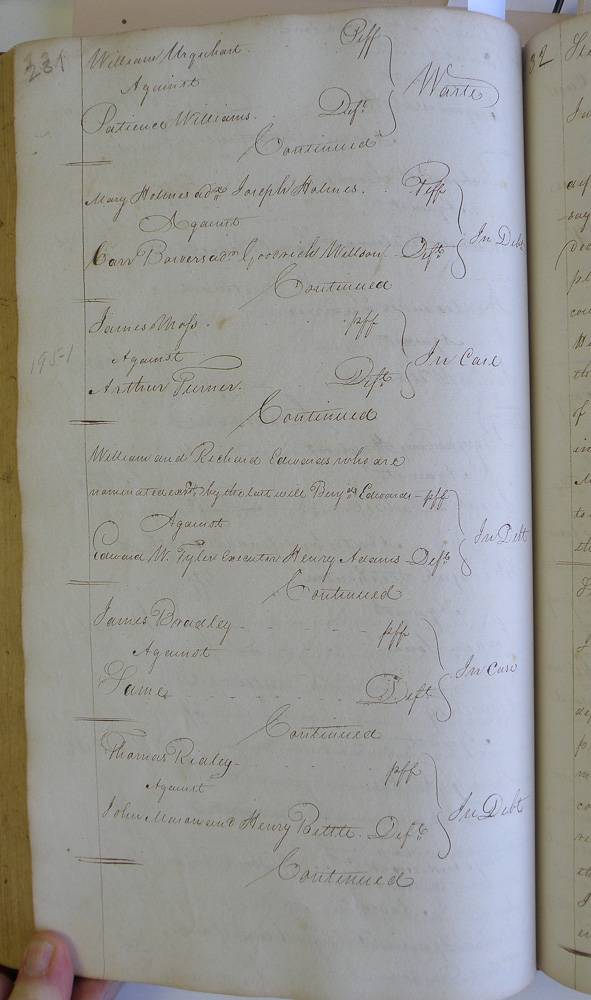 231
William Urquhart. Plff
Against
Waste
Patience Williams. Deft
Continued
Mary Holmes adx Joseph Holmes. Plff
Against
In Debt
Carr Bowers adm Goodrich Willson Deft
Continued
James Moss. plff
1951
Against
In Case
Arthur Turner. Deft
Continued
William and Richard Edwards who are
nominated exrs. by the last will Benj. Edwards - plff
Against
In Debt
Edward W. Tyler Executor Henry Adams - Defts
Continued
James Bradley - plff
Against
In Case
Same Deft
Continued
Thomas Ridley - plff
Against
In Debt
John Mason and Henry Britt. Defts
Continued
32